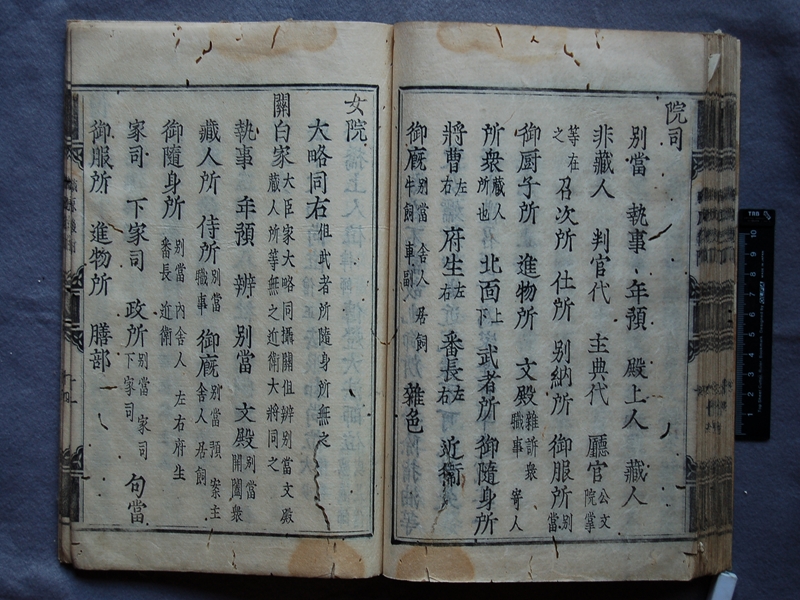 院司
別當 執事 年預 殿上人 藏人
非藏人 判官代 主典代 廳官 公文 院掌
等在之 召次所 仕所 別納所 御服所 別當
御厨子所 進物所 文殿 雜訴衆 職事 寄人
所衆 藏人所也 北面 上下 武者所 御隨身所
將曹 左右 府生 左右 番長 左右 近衞
御廐 別當 舍人 居飼 牛飼 車副 雜色
女院
大略同右 但武者所隨身所無之
關白家 大臣家大略同攝關但辨別當文殿藏人所等無之近衞大將同之
執事 年預 辨別當 文殿 別當 開闔衆
藏人所 侍所 別當 職事 御廐 別當 預 案主 舍人 居飼
御隨身所 別當 內舍人 左右府生 番長 近衞
家司 下家司 政所 別當 家司 下家司 句當
御服所 進物所 膳部